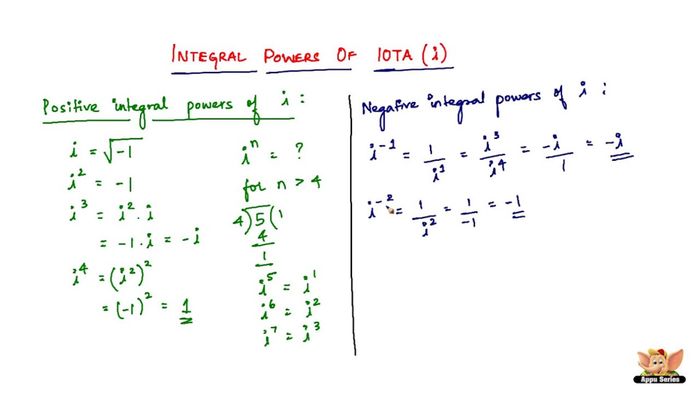 INTEGRAL POWERS OF IOTA (i)
Positive integral powers of i :
i = √-1
i² = -1
i³ = i² · i
= -1 · i = -i
i⁴ = (i²)²
= (-1)² = 1
iⁿ = ?
for n > 4
4) 5 (1
4
1
i⁵ = i¹
i⁶ = i²
i⁷ = i³
Negative integral powers of i :
i⁻¹ = 1/i¹ = i³/i⁴ = -i/1 = -i
i⁻² = 1/i² = 1/-1 = -1
Appu Series